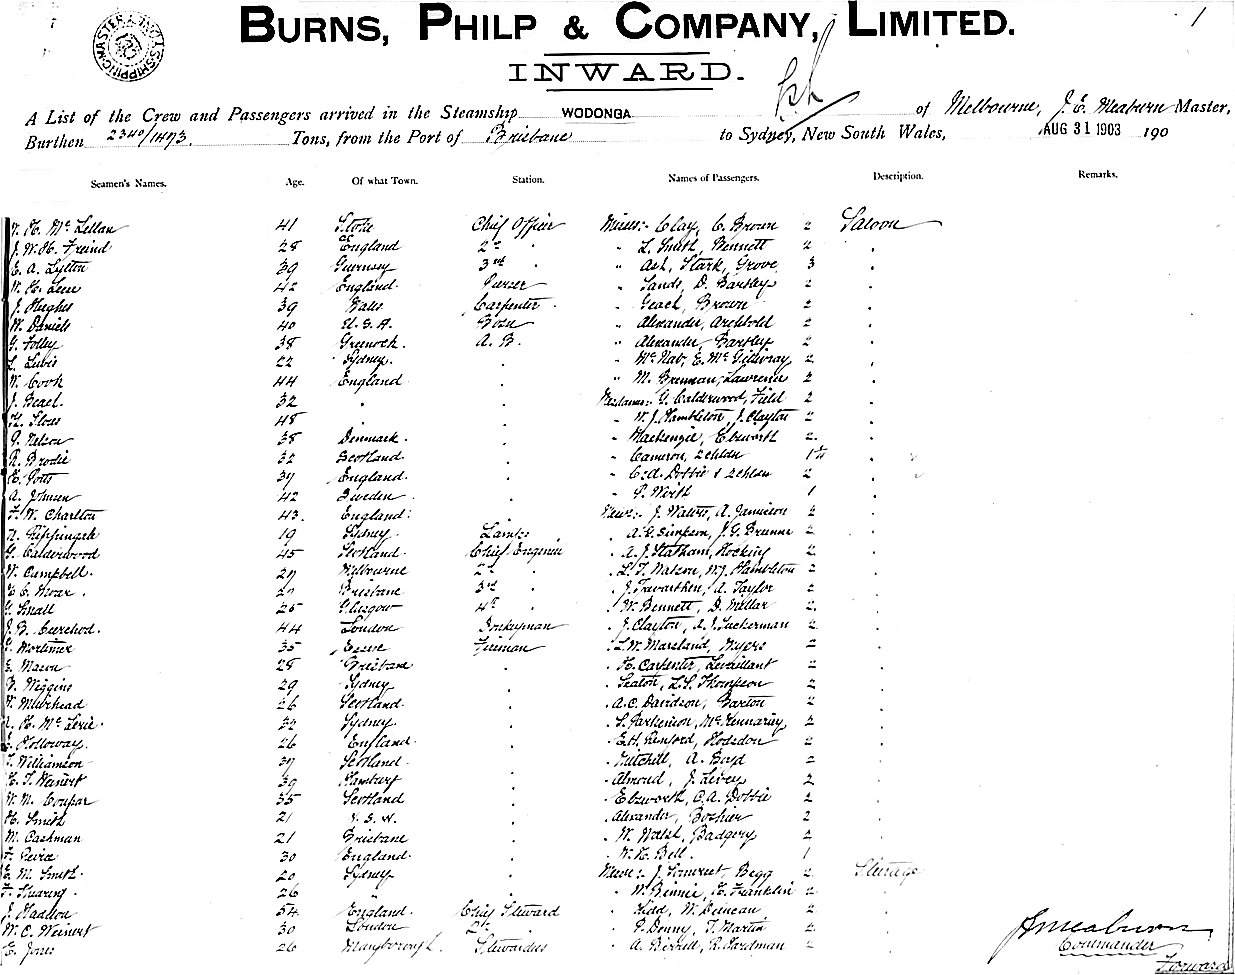 1
SHIPPING MASTER'S
BURNS, PHILP & COMPANY, LIMITED.
INWARD.
A List of the Crew and Passengers arrived in the Steamship WODONGA of Melbourne, J. E. Meaburn Master,
Burthen 2340/1473. Tons, from the Port of Brisbane to Sydney, New South Wales, AUG 31 1903 190
Seamen's Names. Age. Of what Town. Station. Names of Passengers. Description. Remarks.
W. H. Mc Lellan 41 Chief Officer Misses:- Clay, C. Brown 2 Saloon
J. W. H. Freind 28 England 2nd " L. Smith, Bennett 2
E. A. Lytton 39 Guernsey 3rd " Ash, Stark, Grove 3
W. H. 42 England Purser " Sands, D. Barsley 2
J. Hughes 39 Wales Carpenter " Geach, Brown 2
W. Daniels 40 U.S.A. Bosn " Alexander, Archbold 2
G. Folley 38 Greenock A. B. " Alexander, Barsley 2
L. Lewis 22 Sydney. " McNab, E. McGillivray 2
W. Cook 44 England " M. Brennan, Lawrence 2
J. Beael 32 Mesdames:- G. Calderwood, Field 2
H. 48 " W. J. Hambleton, J. Clayton 2
P. Nelson 38 Denmark. " Mackenzie, Ebsworth 2
R. Brodie 32 Scotland " Cameron, 2 chldn
H. Potts 37 England. " C. A. Dobbie & 2 chldn 2
A. Johnson 42 Sweden " P. Weith 1
F. W. Charlton 43. England. Messrs:- J. Walters, A. Jamieson 2
A. Rippingale 19 Sydney. Lamps " A. G. Simpson, J. G. Brunne 2
G. Calderwood 45 Scotland. Chief Engineer " A. J. Statham, Hocking 2
W. Campbell. 27 Melbourne 2nd " L. T. Watson, W. J. Hambleton 2
E. C. Moar. 27 Brisbane 3rd " J. Trevarthen, A. Taylor 2
G. Small 25 Glasgow 4th " W. Bennett, D. Millar 2
J. B. 44 London Donkeyman " J. Clayton, A. J. Tuckerman 2
Mortimer 35 Essex Fireman " L. W. Marsland, Myers 2
E. Mason 28 Brisbane " H. Carpenter, Levaillant 2
Wiggins 29 Sydney " Seaton, L. S. Thompson 2
W. Muirhead 26 Scotland. " A. C. Davidson, Barton 2
A. H. Mc 32 Sydney. " S. Parkinson, McKennariey 2
E. Holloway. 26 England. " E. H. Renford, Hodsdon 2
T. Williamson 37 Scotland. " Mitchell, A. Boyd 2
H. T. Weinert 39 Hamburg " Almond, J. Levey 2
W. M. Coupar 35 Scotland " Ebsworth, C. A. Dobbie 2
H. Smith 21 N. S. W. " Alexander, Boshier 2
M. Cashman 21 Brisbane " W. Walsh, Badgery 2
F. Peirce 30 England. " W. H. Bell. 1
E. M. Smith. 20 Sydney Messrs:- J. Somerset, Begg 2 Steerage
F. Shearing. 26 " W. Binnie, H. Franklin 2
J. Haddon 54 England. Chief Steward " Kidd, W. Duncan 2
W. C. Weinert 30 London 2nd " P. Denny, T. Martin 2
E. Jones 26 Maryborough. Stewardess " A. Birrell, R. Hardman 2
J. E. Meaburn
Commander
Forward